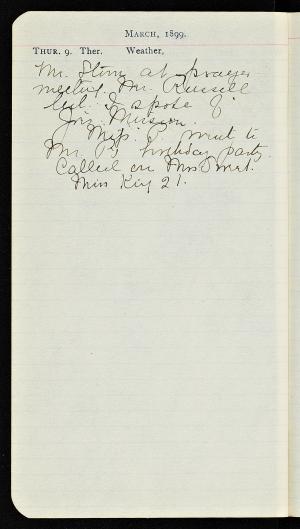 MARCH, 1899.
THUR. 9. Ther. Weather,
Mr. Stirn at prayer
meeting. Mr. Russell
led. & spoke of
Mission.
Miss P. went to
Mr. P's birthday party.
Called on Mrs
Miss Key 21.